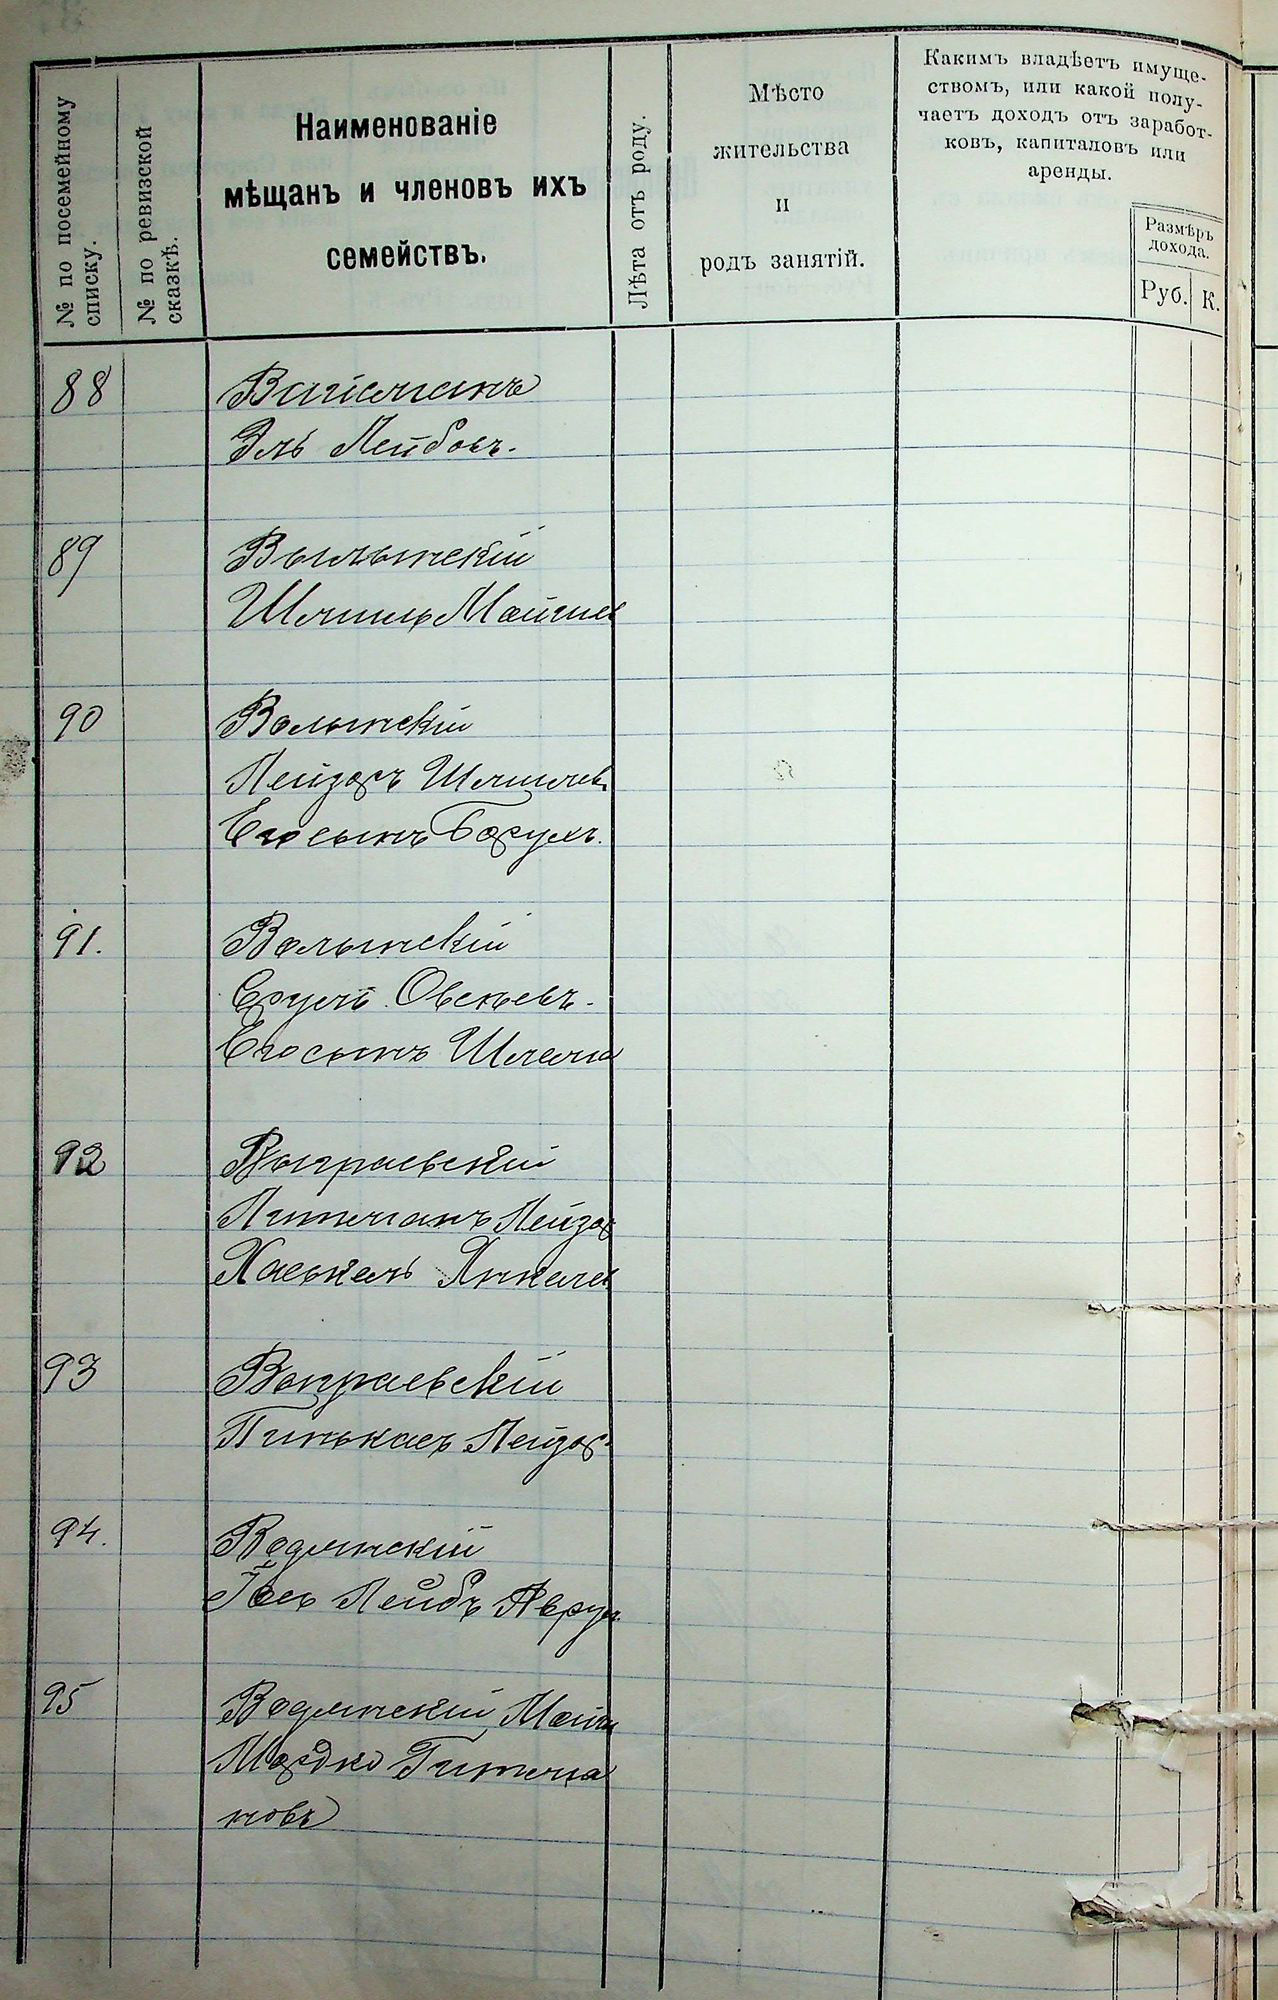 № по посемейному
списку.
№ по ревизской
сказкѣ.
Наименованіе
мѣщанъ и членовъ ихъ
семействъ.
Лѣта отъ роду.
Мѣсто
жительства
и
родъ занятій.
Какимъ владѣетъ имуще-
ствомъ, или какой полу-
чаетъ доходъ отъ заработ-
ковъ, капиталовъ или
аренды.
Размѣръ
дохода.
Руб.
К.
88
Вайсманъ
Эль Лейбовъ.
89
Волынскій
90
Волынскій
Лейзоръ
Его сынъ Борухъ.
91.
Волынскій
Сруль Овсѣевъ.
Его сынъ Шлема
92
Выграевскій
Литманъ Лейзор
Хаськель Янкелев
93
Выграевскій
Пинькасъ Лейзор.
94.
Водянскій
Іось Лейбъ Аврум
95
Водянскій
Мордко Гитма
новъ